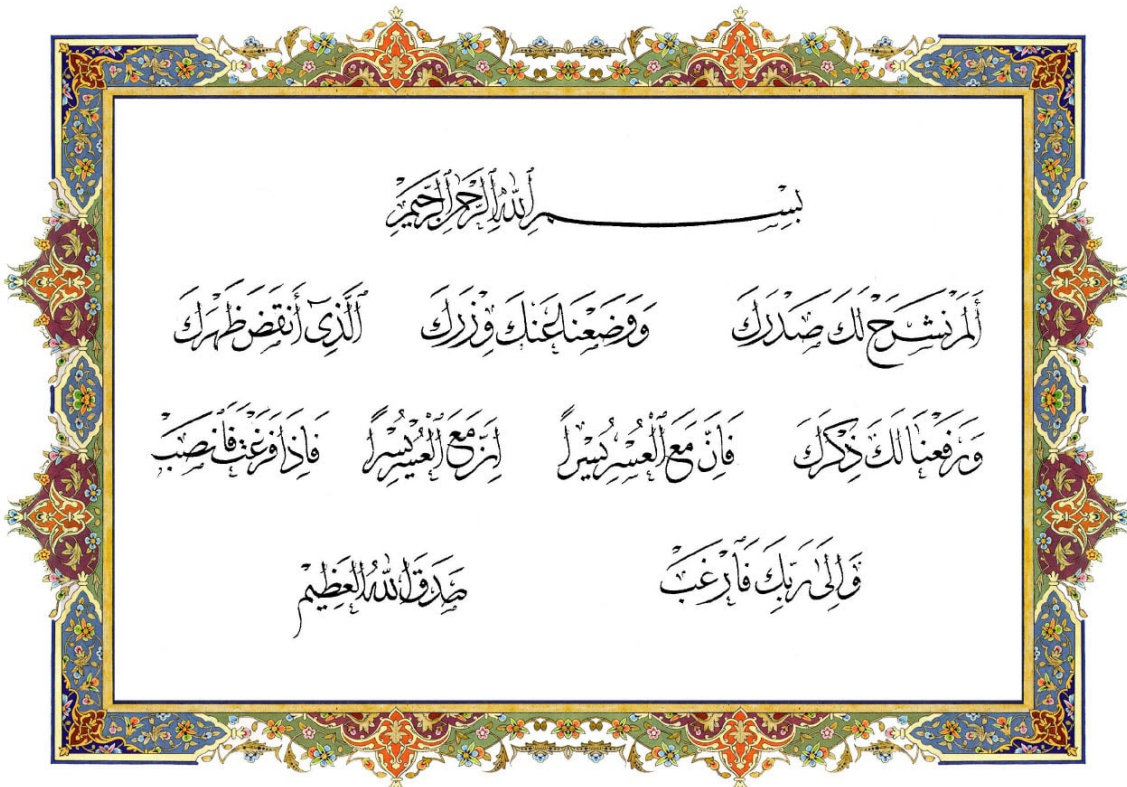 بِسْمِ ٱللَّهِ ٱلرَّحْمَٰنِ ٱلرَّحِيمِ
أَلَمْ نَشْرَحْ لَكَ صَدْرَكَ وَوَضَعْنَا عَنكَ وِزْرَكَ ٱلَّذِىٓ أَنقَضَ ظَهْرَكَ
وَرَفَعْنَا لَكَ ذِكْرَكَ فَإِنَّ مَعَ ٱلْعُسْرِ يُسْرًا إِنَّ مَعَ ٱلْعُسْرِ يُسْرًا فَإِذَا فَرَغْتَ فَٱنصَبْ
وَإِلَىٰ رَبِّكَ فَٱرْغَبْ صَدَقَ اللهُ الْعَظِيمُ